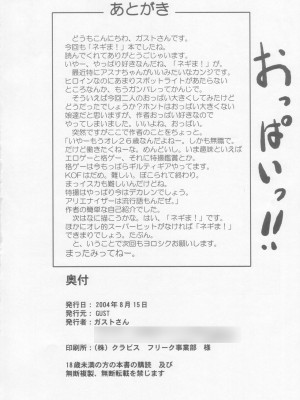 あとがき
どうもこんにちわ、ガストさんです。
今回も「ネギま！」本でしたね。
読んでくれてありがとうごじゃいます。
いやー、やっぱり好きなんだね、「ネギま！」が。
最近特にアスナちゃんがいいみたいなカンジです。
ヒロインなのにあまりスポットライトがあたらない
ところなんか、もうガンバレってかんじで。
そういえば今回二人のおっぱい大きくしてみたけど
どうだったでしょうか？ホントはおっぱい大きくない
娘達だと思いますが、作者おっぱい好きなので
やってしまいました。いいよね、おっぱい。
突然ですがここで作者のことをちょっと。
「いやーもうオレ２６歳なんだよねー。しかも無職で、
だけど働きたくねーな。めんどいし。いま趣味といえば
エロゲーと格ゲー、それに特撮鑑賞とか。
格ゲーは今もっぱらギルティギアやってます。
KOFはだめ。難しい。ぼこられて終わり。
まっイスカも難しいんだけどね。
特撮はやっぱり今はデカレンでしょう。
アリエナイザーは流行語もんだぜ。」
作者の簡単な自己紹介でした。
次はなに描こうかな。はい、「ネギま！」です。
ほかにオレ的スーパーヒットがなければ「ネギま！」
できまりでしょう。たぶん。
と、いうことで次回もヨロシクお願いします。
まったみってねー。
おっぱいっ!!
奥付
発行日：2004年8月15日
発行元：GUST
発行者：ガストさん
印刷所：（株）クラビス　フリーク事業部　様
18歳未満の方の本書の購読　及び
無断複製、無断転載を禁じます